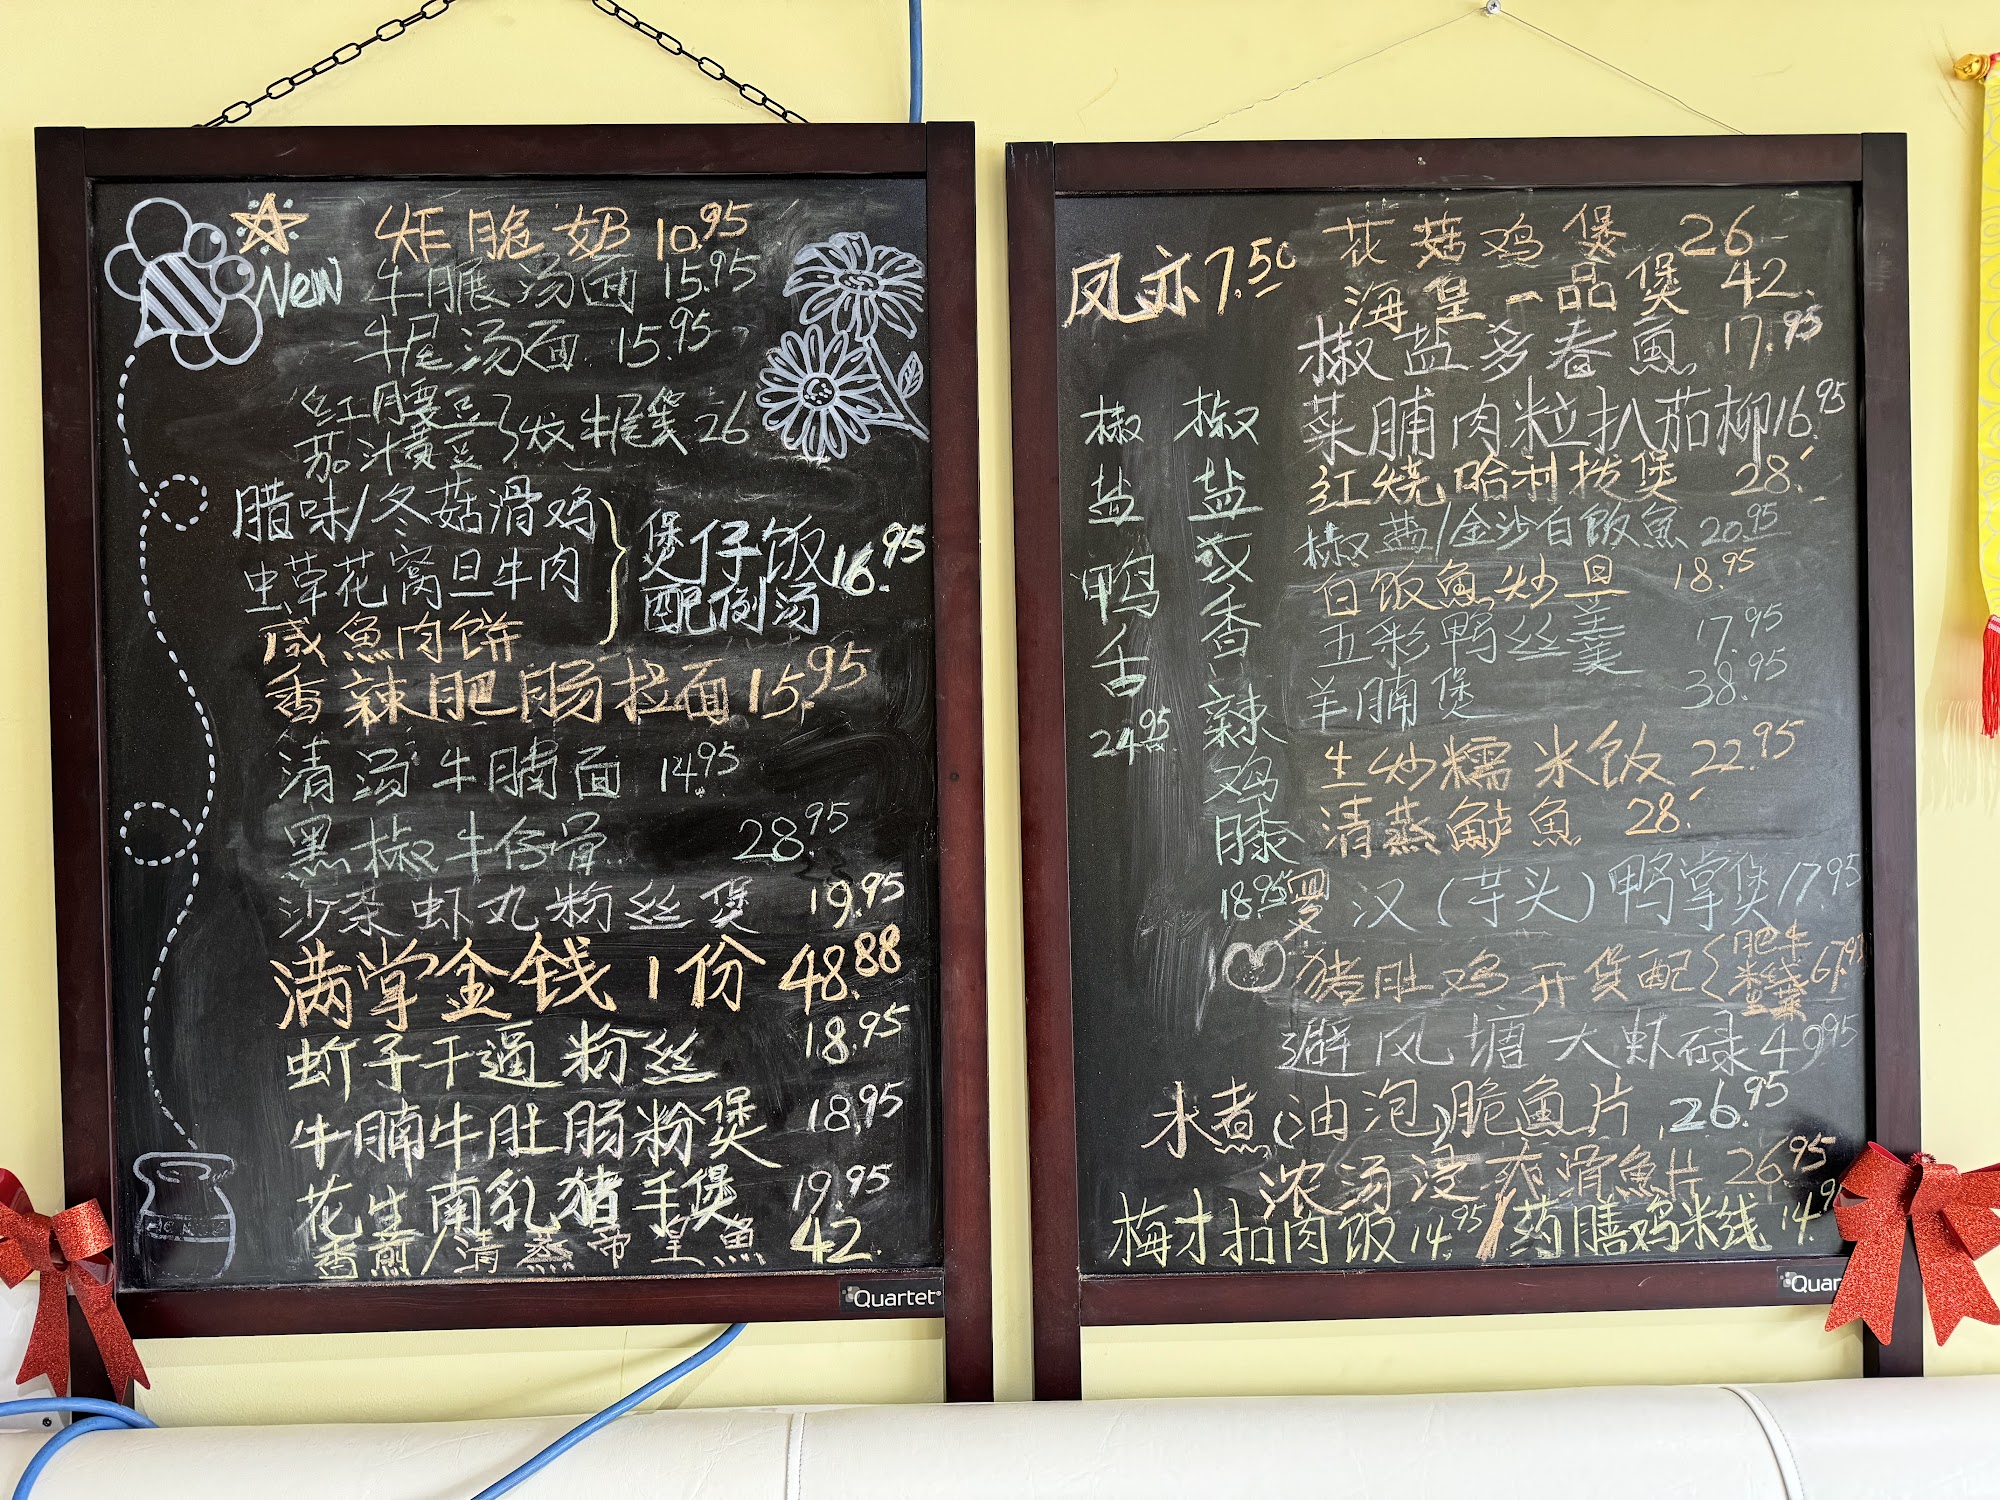 New
炸脆奶 10.95
牛腒汤面 15.95
牛尾汤面 15.95
红腰豆
茄汁黄豆 炆牛尾煲 26
腊味/冬菇滑鸡
虫草花窝旦牛肉
咸魚肉饼
煲仔饭 16.95
配例汤
香辣肥肠拉面 15.95
清汤牛腩面 14.95
黑椒牛仔骨 28.95
沙茶虾丸粉丝煲 19.95
满掌金钱1份 48.88
蚧子干逼粉丝 18.95
牛腩牛肚肠粉煲 18.95
花生/南乳猪手煲 19.95
香煎/清蒸帝皇魚 42
Quartet
凤亦 7.50
椒盐鸭舌 24.95
椒盐孜香辣鸡膝 18.95
花菇鸡煲 26
海皇一品煲 42.
椒盐多春魚 17.95
菜脯肉粒扒茄柳 16.95
红烧哈利拨煲 28.
椒盐/金沙白飯魚 20.95
白饭魚炒旦 18.95
五彩鸭丝羹 17.95
羊腩煲 38.95
生炒糯米饭 22.95
清蒸鲈魚 28.
罗汉(芋头)鸭掌煲 17.95
猪肚鸡开煲配 肥牛 米线 67.95
避风塘大虾碌 49.95
水煮(油泡)脆鱼片 26.95
浓汤浸爽滑魚片 26.95
梅才扣肉饭 14.95 / 药膳鸡米线 14.9
Quar